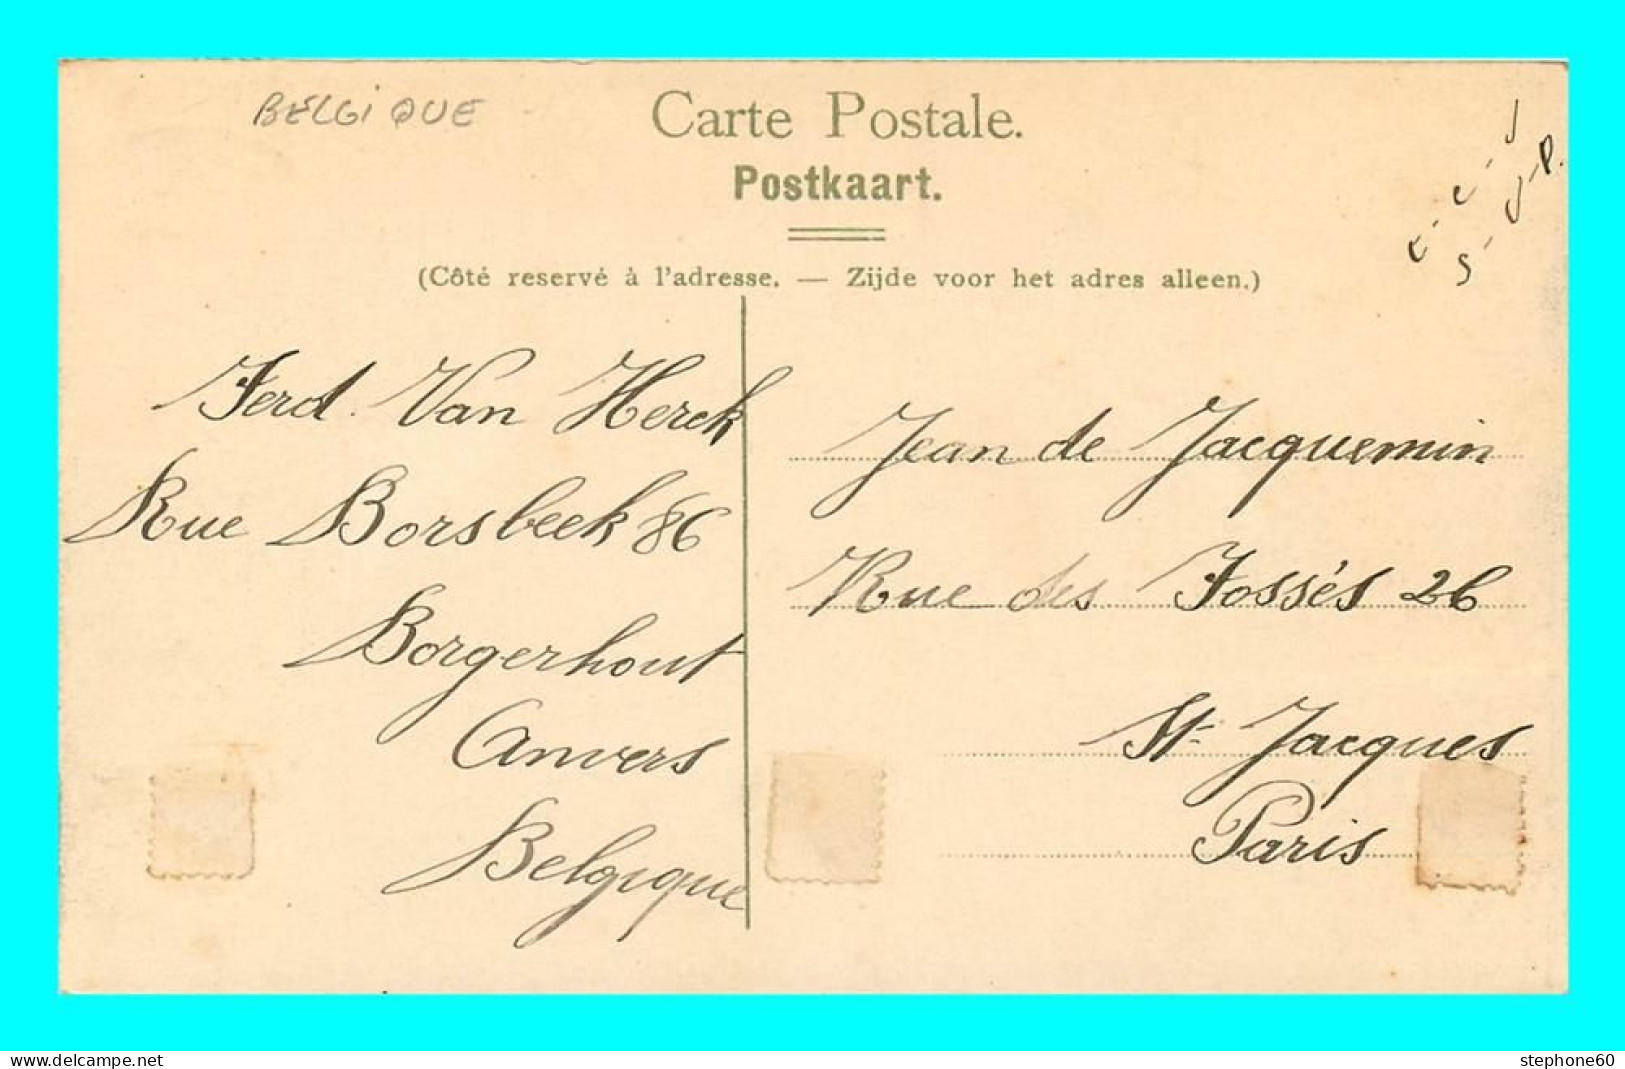 BELGIQUE
Carte Postale.
Postkaart.
(Côté reservé à l'adresse. — Zijde voor het adres alleen.)
Ferd. Van Herck
Rue Borsbeek 86
Borgerhout
Anvers
Belgique
Jean de Jacquemin
Rue des Fossés 26
St Jacques
Paris
www.delcampe.net
stephone60